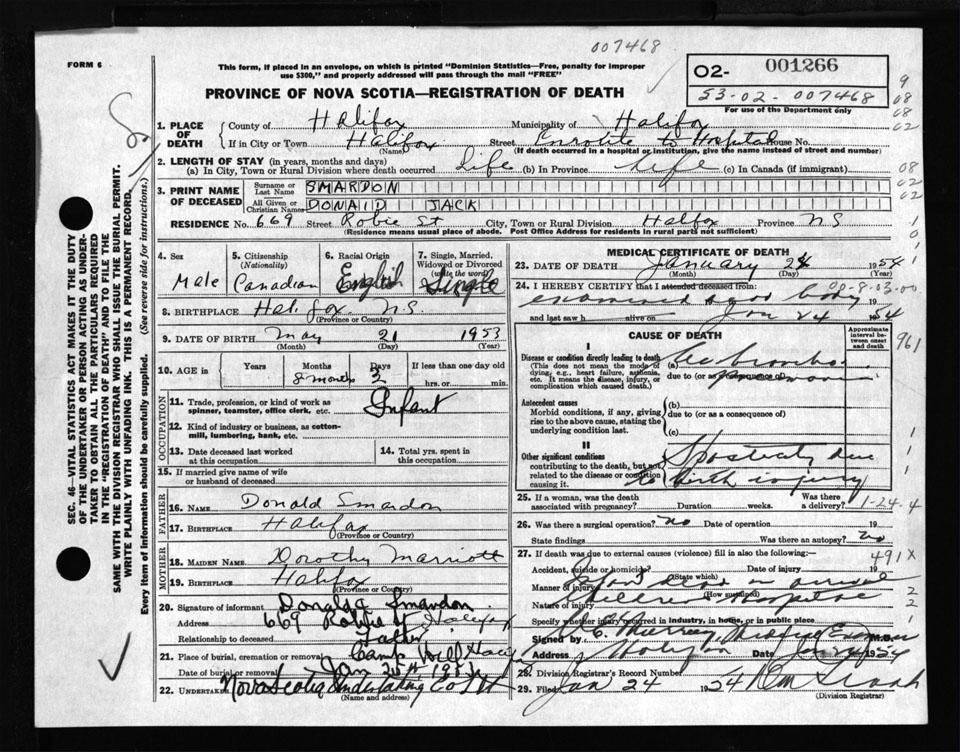 007468
FORM 6
This form, if placed in an envelope, on which is printed "Dominion Statistics—Free, penalty for improper
use $300," and properly addressed will pass through the mail "FREE"
02- 001266
53-02-007468
For use of the Department only
PROVINCE OF NOVA SCOTIA—REGISTRATION OF DEATH
9
08
68
02
1. PLACE OF DEATH
County of Halifax Municipality of Halifax
If in City or Town Halifax Street Enroute to Hospital House No.
(Name) (If death occurred in a hospital or institution, give the name instead of street and number)
2. LENGTH OF STAY (in years, months and days)
(a) In City, Town or Rural Division where death occurred Life (b) In Province Life (c) In Canada (if immigrant)
08
02
02
3. PRINT NAME OF DECEASED
Surname or Last Name SMARDON
All Given or Christian Names DONALD JACK
RESIDENCE No. 669 Street Robie St City, Town or Rural Division Halifax Province NS
(Residence means usual place of abode. Post Office Address for residents in rural parts not sufficient)
4. Sex
Male
5. Citizenship
(Nationality)
Canadian
6. Racial Origin
English
7. Single, Married,
Widowed or Divorced
(write the word)
Single
8. BIRTHPLACE Halifax N.S.
(Province or Country)
9. DATE OF BIRTH May 21 1953
(Month) (Day) (Year)
10. AGE in Years Months Days If less than one day old
8 months 3 hrs. or min.
OCCUPATION
11. Trade, profession, or kind of work as
spinner, teamster, office clerk, etc. Infant
12. Kind of industry or business, as cotton-
mill, lumbering, bank, etc.
13. Date deceased last worked
at this occupation
14. Total yrs. spent in
this occupation
15. If married give name of wife
or husband of deceased
FATHER
16. NAME Donald Smardon
17. BIRTHPLACE Halifax
(Province or Country)
MOTHER
18. MAIDEN NAME Dorothy Marriott
19. BIRTHPLACE Halifax
(Province or Country)
20. Signature of informant Donald Smardon
Address 669 Robie St Halifax
Relationship to deceased Father
21. Place of burial, cremation or removal Camp Hill
Date of burial or removal Jan 25th
22. Undertaker Nova Scotia Undertaking Co Ltd
(Name and address)
MEDICAL CERTIFICATE OF DEATH
23. DATE OF DEATH January 24 1954
(Month) (Day) (Year)
24. I HEREBY CERTIFY that I attended deceased from:
00-8-03-00
examined body 19
and last saw h alive on Jan 24 1954
CAUSE OF DEATH
Approximate interval between onset and death
961
I
Disease or condition directly leading to death
(This does not mean the mode of dying, e.g., heart failure, asthenia, etc. It means the disease, injury, or complication which caused death.)
(a)
due to (or as a consequence of)
Antecedent causes
Morbid conditions, if any, giving rise to the above cause, stating the underlying condition last.
(b)
due to (or as a consequence of)
(c)
II
Other significant conditions
contributing to the death, but not related to the disease or condition causing it.
due
to birth injury
25. If a woman, was the death
associated with pregnancy? Duration weeks. Was there a delivery?
1-24-4
26. Was there a surgical operation? no Date of operation 19
State findings Was there an autopsy? no
27. If death was due to external causes (violence) fill in also the following:—
491 X
Accident, suicide or homicide? Date of injury 19
(State which)
Manner of injury dead on arrival
(How sustained)
Nature of injury Children's Hospital
Specify whether injury occurred in industry, in home, or in public place
Signed by Murray, Medical Examiner M.D.
Address Date Jan 24 1954
28. Division Registrar's Record Number
29. Filed Jan 24 19
(Division Registrar)
SEC. 46—VITAL STATISTICS ACT MAKES IT THE DUTY
OF THE UNDERTAKER OR PERSON ACTING AS UNDER-
TAKER TO OBTAIN ALL THE PARTICULARS REQUIRED
IN THE "REGISTRATION OF DEATH" AND TO FILE THE
SAME WITH THE DIVISION REGISTRAR WHO SHALL ISSUE THE BURIAL PERMIT.
WRITE PLAINLY WITH UNFADING INK. THIS IS A PERMANENT RECORD.
Every item of information should be carefully supplied. (See reverse side for instructions.)